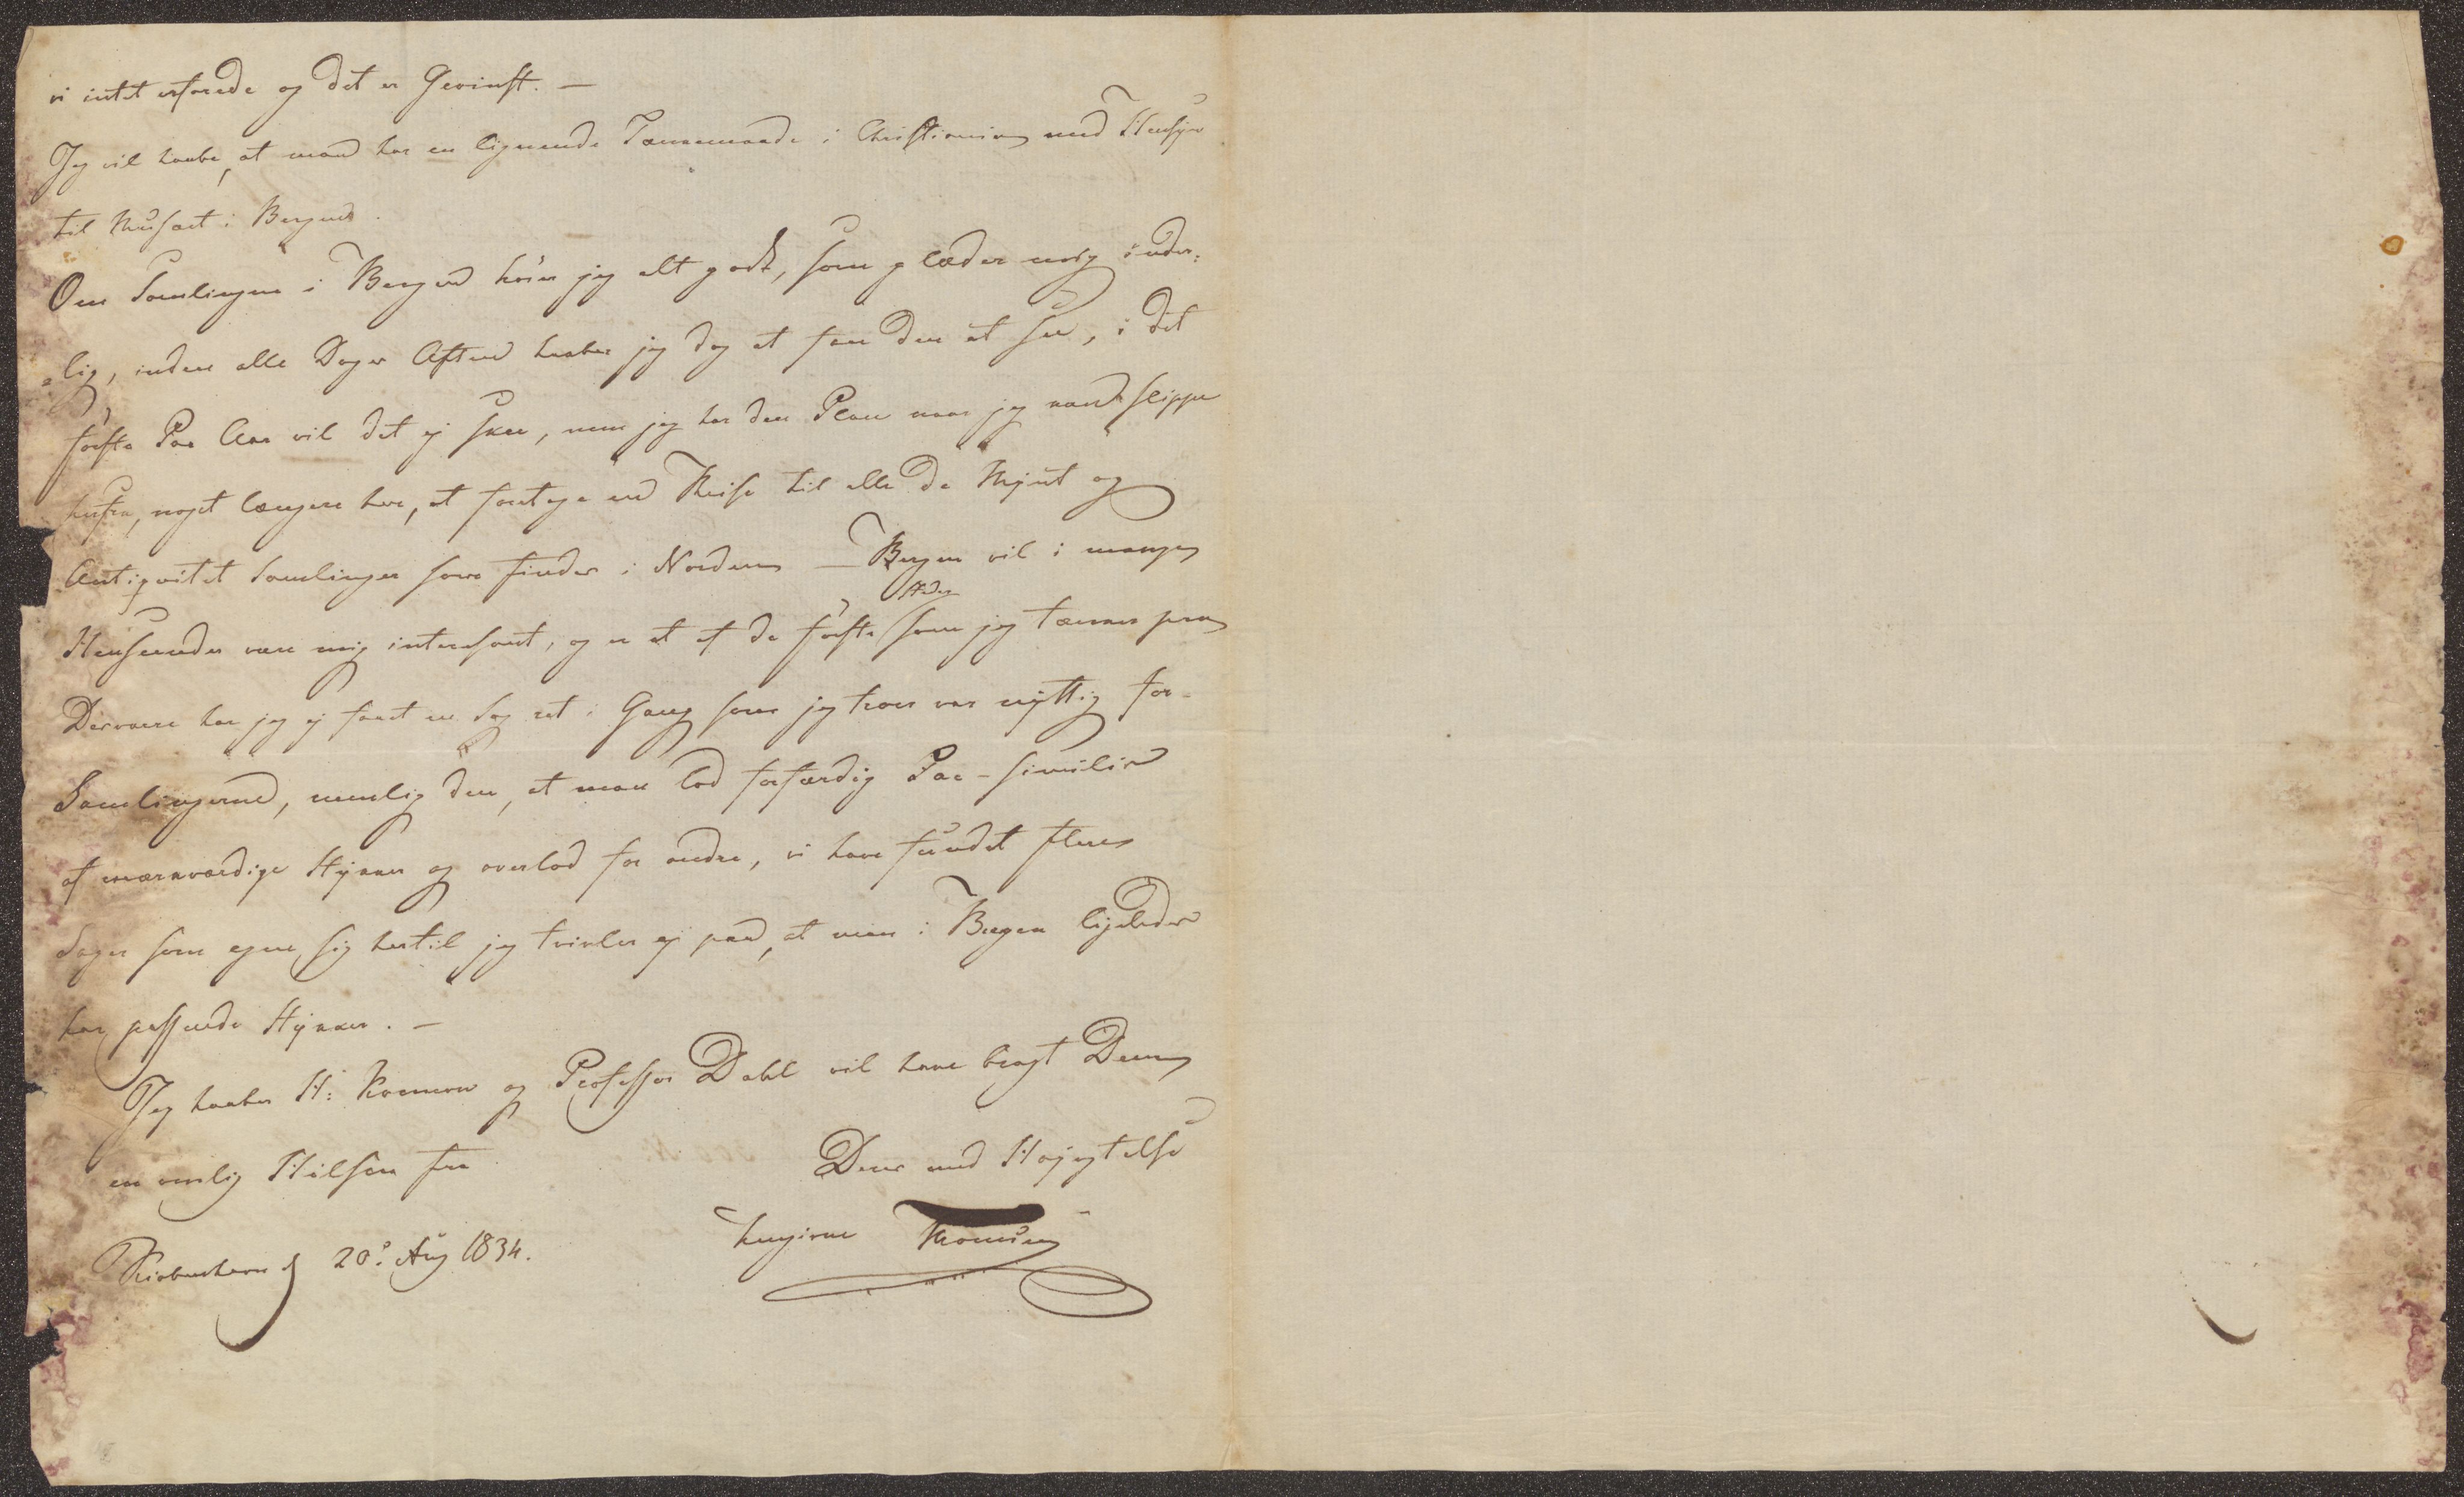 vi intet erfarede og det er Gevinst. —
Jeg vil haabe, at man har en lignende Tænkemaade i Christiania med Hensyn
til Musæet i Bergen.
Om Samlingen i Bergen hører jeg alt godt, som glæder mig inder-
lig, inden alle Dages Aften haaber jeg dog at faae den at see, i det
første Par Aar vil det ej skee, men jeg har den Plan naar jeg kan slippe
herfra, noget længere hen, at foretage en Reise til alle de Mynt og
Antiqvitet Samlinger som findes i Norden — Bergen vil i mange
Henseender være mig interesant, og er et af de første Steder som jeg tænker paa
Desværre har jeg ej faaet en Sag ret i Gang som jeg troer var nyttig for
Samlingerne, nemlig den, at man lod forfærdig Fac-similier
af mærkværdige Stykker og overlod for andre, vi have fundet flere
Sager som egne sig hertil jeg tvivler ej paa, at man i Bergen ligeledes
har passende Stykker. —
Jeg haaber H: og Professor Dahl vil have bragt Dem
en venlig Hilsen fra
Deres med Højagtelse
hengivne Thomsen
Kiøbenhavn d 20: Aug 1834.